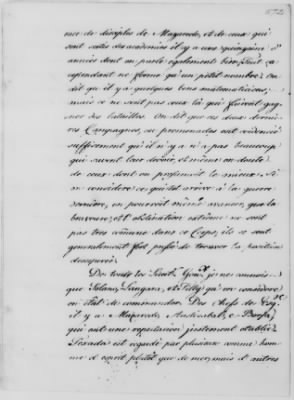 nce de disciples de Mazarredo, et de ceux qui
sont sortis des academies il y a une quinzaine d'
années dont on parle egalement bien; tout ca
cependant ne forme qu'un petit nombre. On
dit qu'il y a quelques bons mathematiciens;
mais ce ne sont pas ceux là qui feroient gag-
ner des batailles. On dit que ces deux derniè-
res Campagnes, ou promenades ont evidencié
suffisamment qu'il n'y a pas beaucoup
qui savent leur devoir, et même on doute
de ceux dont on presumoit le mieux. Si
on considere ce qui est arrivé à la guerre
derniere, on pourroit même avancer, que la
bravoure, et l'obstination extrême ne sont
pas tres communes dans ce Corps; ils se sont
generalement fait
De touts les Lieut. Gen.x je ne connois
que Solano, Langara, et Tilly qu'on considere
en état de commander. Des chefs de Esq.
il y a Mazarredo, Aristizabal, e Borja,
qui ont une reputation justement etablie.
Posada est regardé par plusieurs comme hom-
me d'esprit plutôt que de mer, mais d'autres